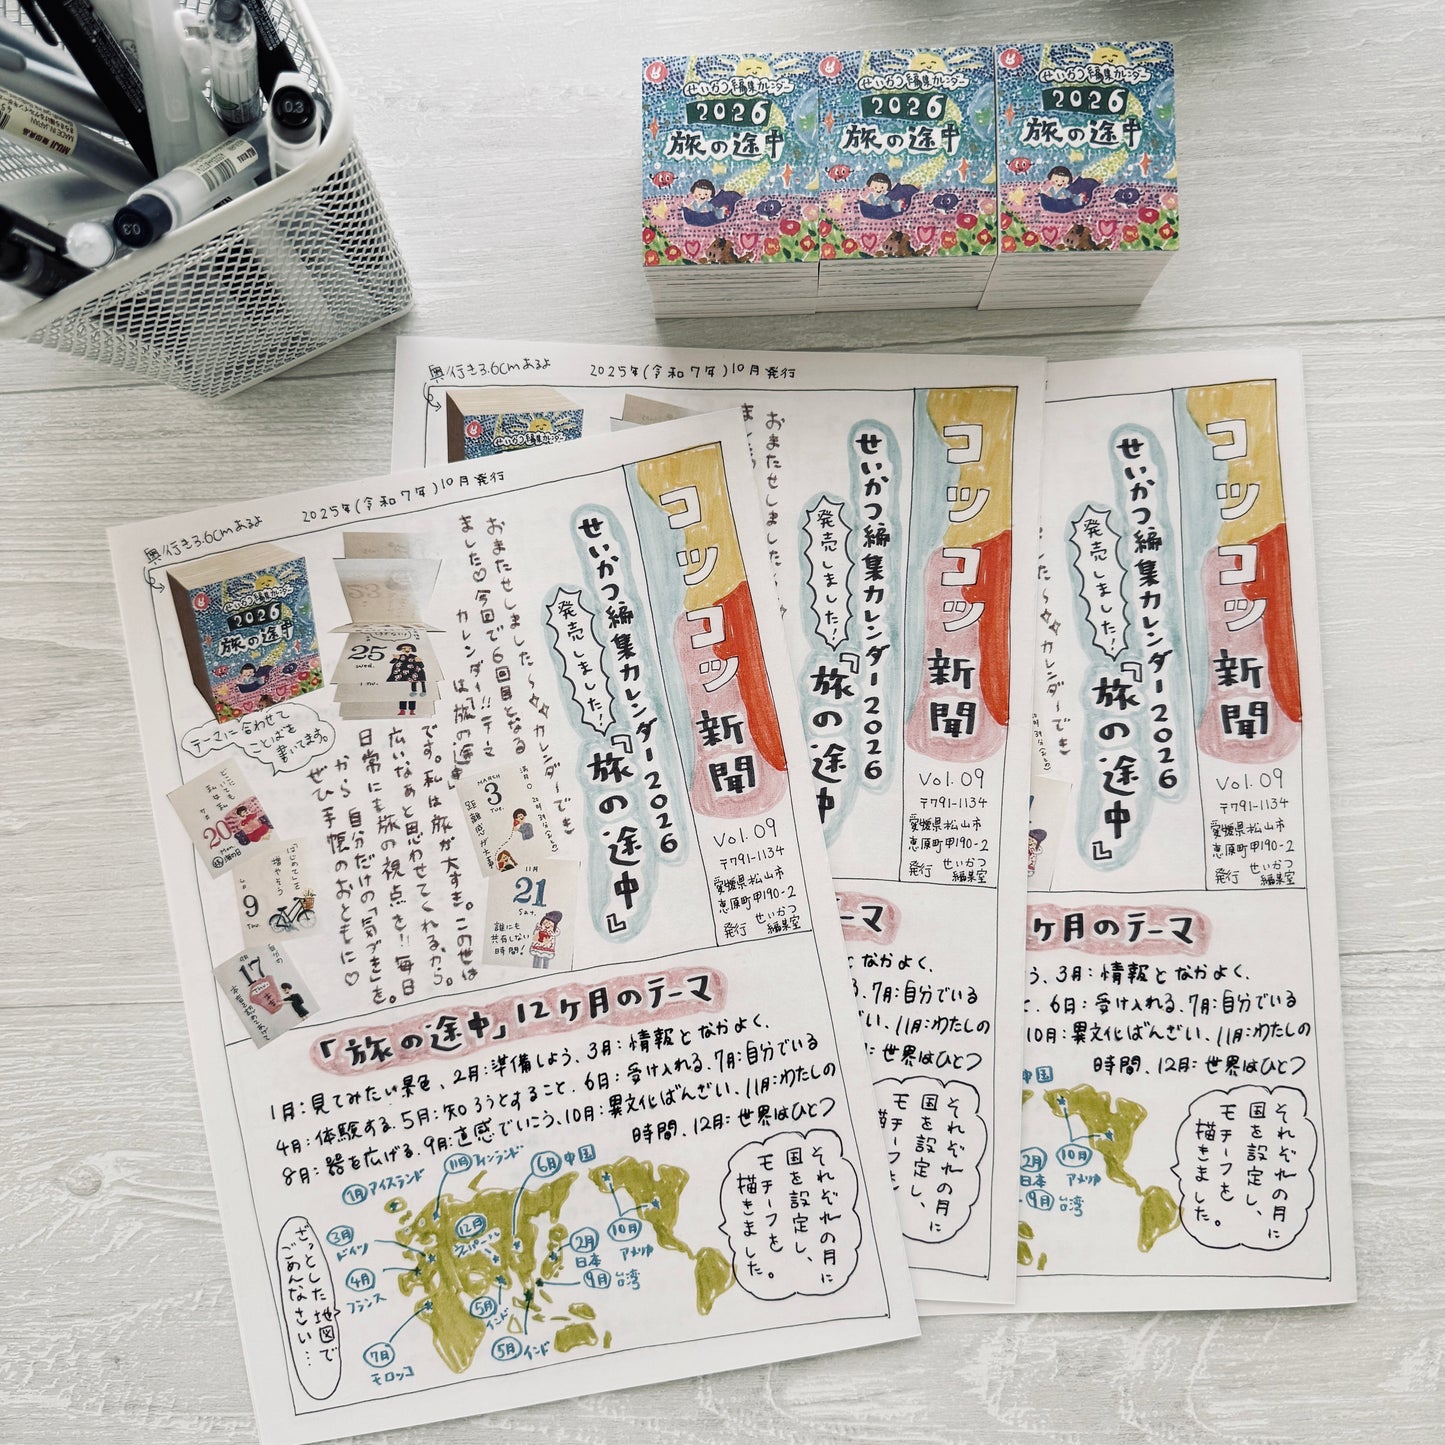 MUJI 無印良品
MADE IN JAPAN
0.3
0.3
せいかつ編集カレンダー
2026
旅の途中
せいかつ編集カレンダー
2026
旅の途中
せいかつ編集カレンダー
2026
旅の途中
奥行き3.6cmあるよ
2025年(令和7年)10月発行
コツコツ新聞
Vol.09
〒791-1134
愛媛県松山市
恵原町甲190-2
発行 せいかつ編集室
せいかつ編集カレンダー2026
発売しました!
『旅の途中』
おまたせしました〜
カレンダーでき
ました♡今回で6回目となる
カレンダー!!テーマ
は「旅の途中」
です。私は旅が大すき。この世は
広いなぁと思わせてくれるから。
日常にも旅の視点を!!毎日
から自分だけの「気づき」を。
ぜひ手帳のおともに♡
せいかつ編集カレンダー
2026
旅の途中
25
Wed.
テーマに合わせて
ことばを
書いてます。
どこにいても
私は私
20
Mon.
はじめてを
増やそう
9
17
MARCH
3
Tue.
距離感が大事
11月
21
Sat.
誰にも
共有しない
時間!
「旅の途中」12ヶ月のテーマ
1月:見てみたい景色、2月:準備しよう、3月:情報となかよく、
4月:体験する、5月:知ろうとすること、6月:受け入れる、7月:自分でいる
8月:器を広げる、9月:直感でいこう、10月:異文化ばんざい、11月:わたしの
時間、12月:世界はひとつ
1月 アイスランド
11月 フィンランド
6月 中国
3月 ドイツ
12月 ネパール
2月 日本
10月 アメリカ
4月 フランス
9月 台湾
5月 インド
5月 インド
7月 モロッコ
それぞれの月に
国を設定し、
モチーフを
描きました。
ざっとした地図で
ごめんなさい…
奥行き3.6cmあるよ
2025年(令和7年)10月発行
せいかつ編集カレンダー
おまたせしました〜
コツコツ新聞
Vol.09
〒791-1134
愛媛県松山市
恵原町甲190-2
発行 せいかつ編集室
せいかつ編集カレンダー2026
発売しました!
『旅の途中
ーマ
となかよく、
3、7月:自分でいる
い、11月:わたしの
:世界はひとつ
それぞれの月に
国を設定し、
モチーフを
コツコツ新聞
Vol.09
〒791-1134
愛媛県松山市
恵原町甲190-2
発行 せいかつ編集室
せいかつ編集カレンダー2026
発売しました!
『旅の途中』
カレンダーでき
ヶ月のテーマ
う、3月:情報となかよく、
6月:受け入れる、7月:自分でいる
10月:異文化ばんざい、11月:わたしの
時間、12月:世界はひとつ
中国
2月 日本
10月 アメリカ
9月 台湾
それぞれの月に
国を設定し、
モチーフを
描きました。